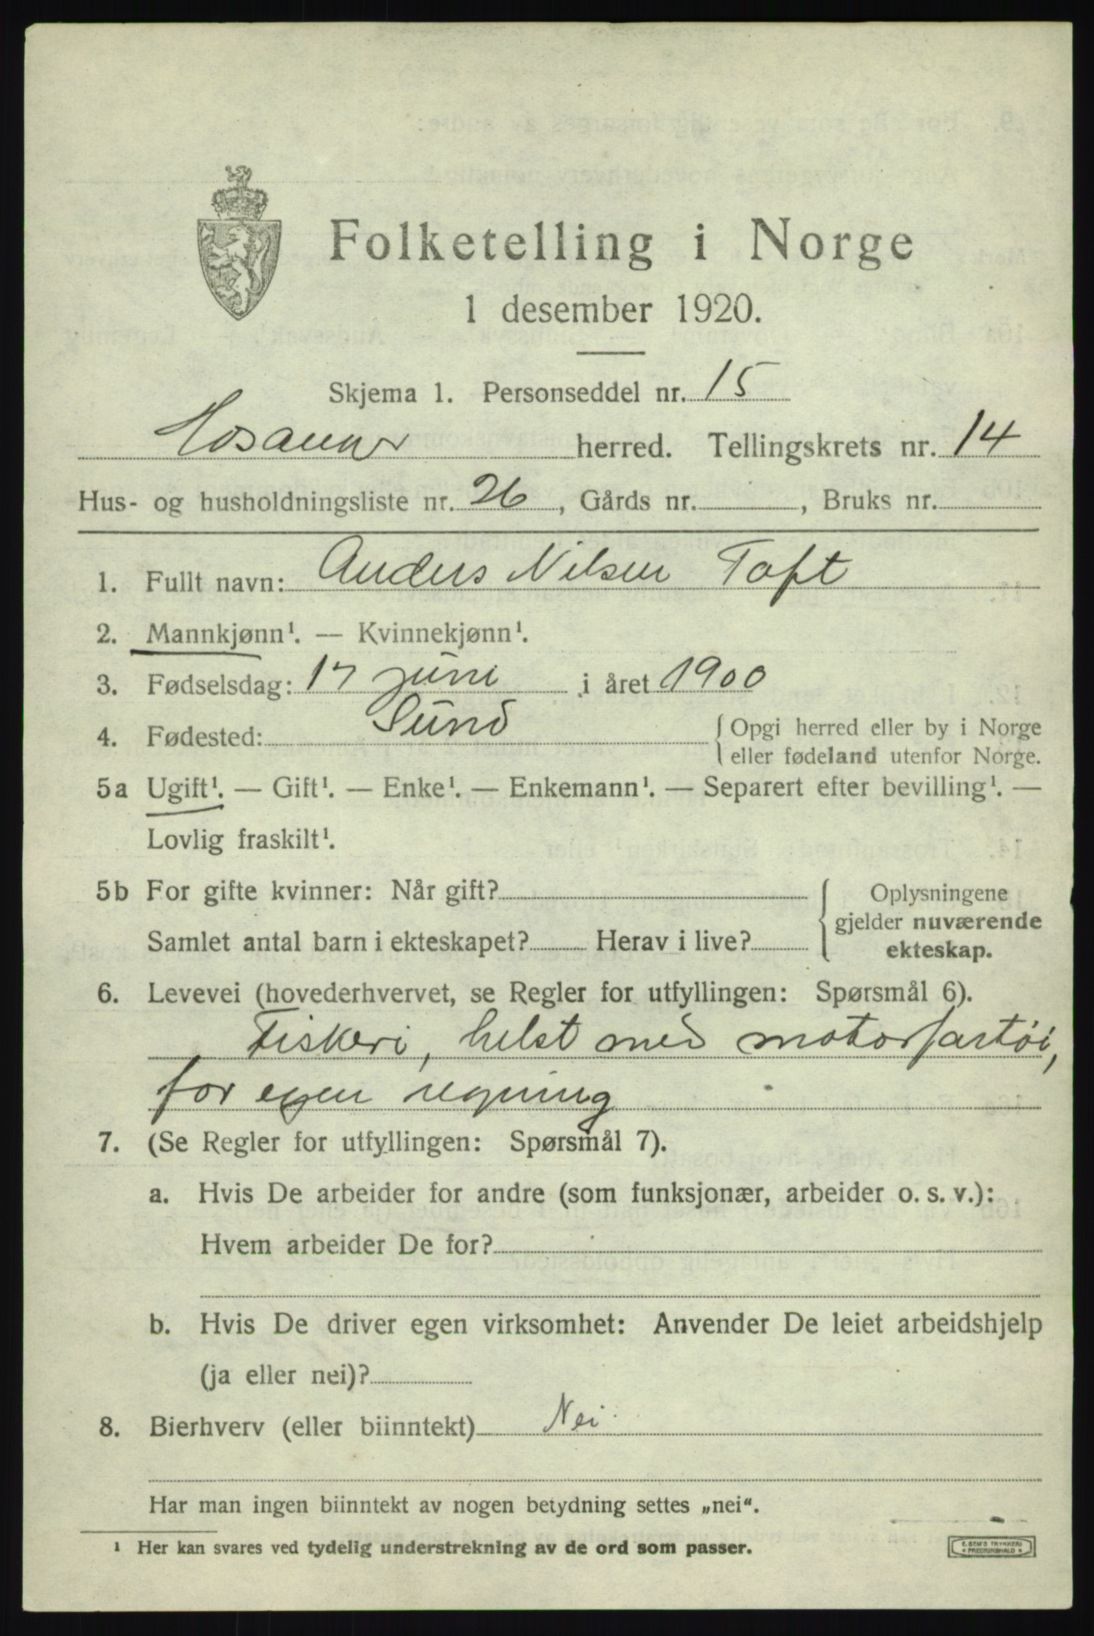 Folketelling i Norge
1 desember 1920.
Skjema 1. Personseddel nr. 15
Hosanger herred. Tellingskrets nr. 14
Hus- og husholdningsliste nr. 26, Gårds nr. , Bruks nr.
1. Fullt navn: Anders Nilsen Toft
2. Mannkjønn¹. — Kvinnekjønn¹.
3. Fødselsdag: 17 juni i året 1900
4. Fødested: Sund { Opgi herred eller by i Norge
eller fødeland utenfor Norge.
5a Ugift¹. — Gift¹. — Enke¹. — Enkemann¹. — Separert efter bevilling¹. —
Lovlig fraskilt¹.
5b For gifte kvinner: Når gift? { Oplysningene
gjelder nuværende
Samlet antal barn i ekteskapet? Herav i live?
ekteskap.
6. Levevei (hovederhvervet, se Regler for utfyllingen: Spørsmål 6).
Fiskeri, helst med motorfartøi,
for egen regning
7. (Se Regler for utfyllingen: Spørsmål 7).
a. Hvis De arbeider for andre (som funksjonær, arbeider o. s. v.):
Hvem arbeider De for?
b. Hvis De driver egen virksomhet: Anvender De leiet arbeidshjelp
(ja eller nei)?
8. Bierhverv (eller biinntekt) Nei
Har man ingen biinntekt av nogen betydning settes „nei“.
¹ Her kan svares ved tydelig understrekning av de ord som passer.
E. SEM'S TRYKKERI
FREDRIKSHALD